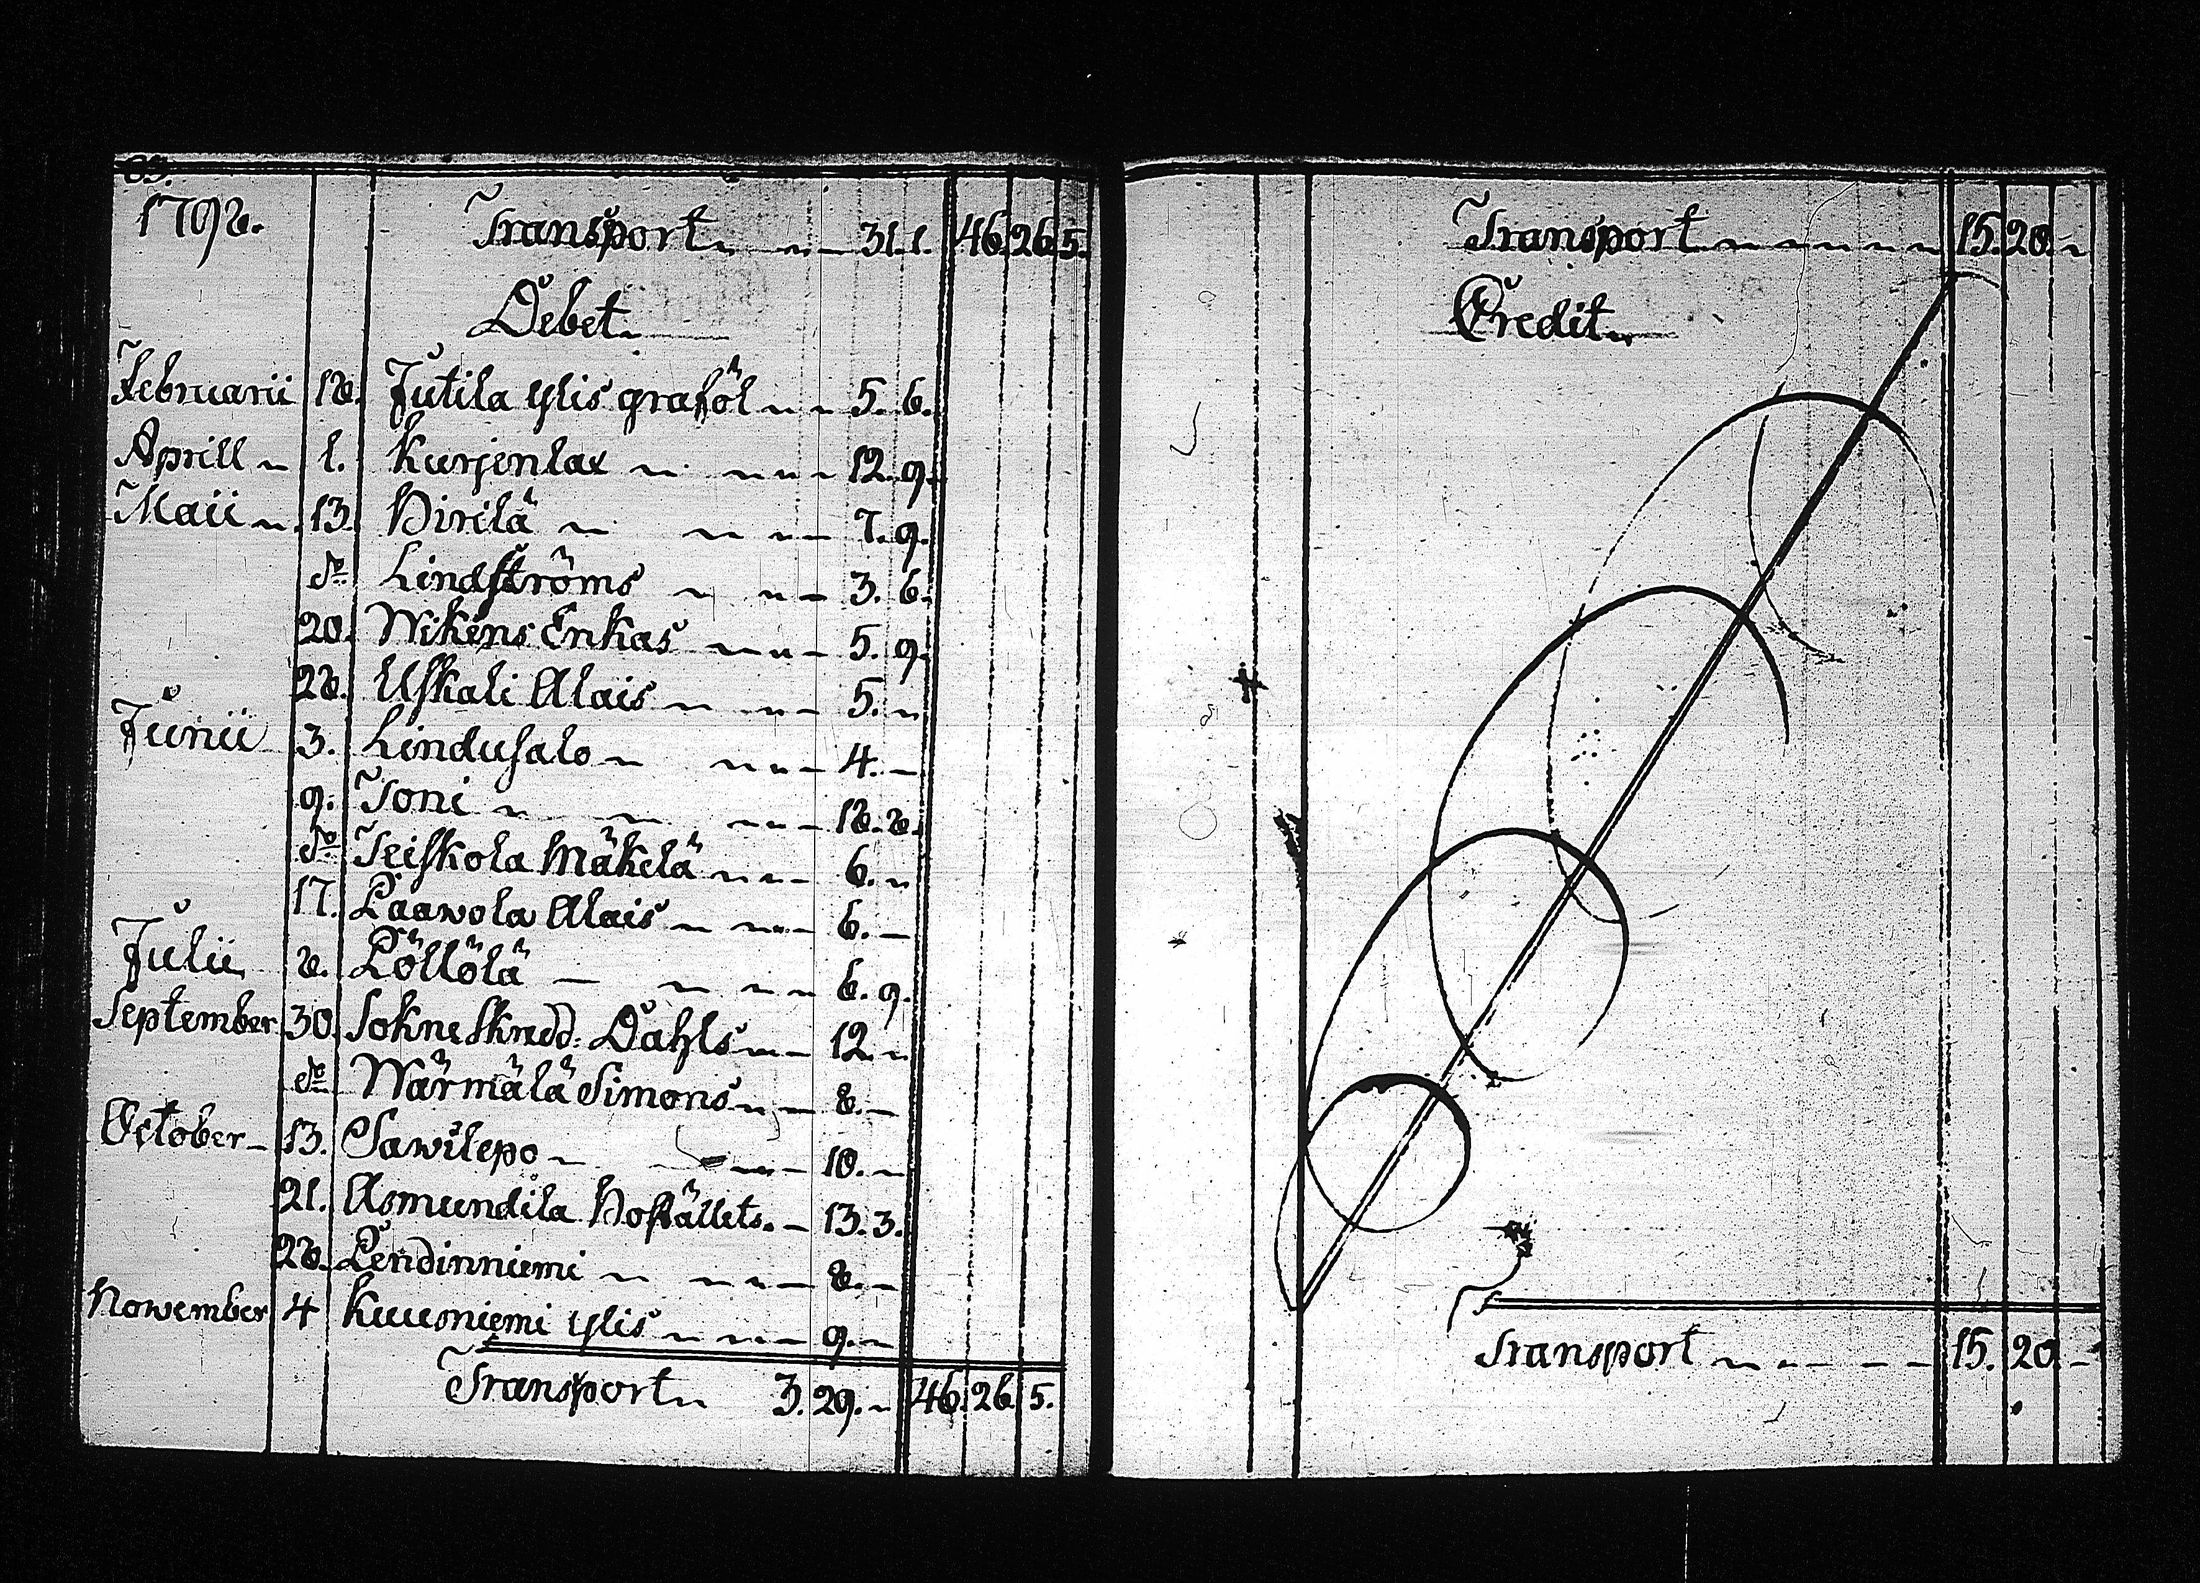 1798. Transport 31.1. 46. 26. 5.
Debet
Februarii 18. Jutila ylis graföl 5. 6.
Aprill 1. Kurjenlax 12. 9.
Maii 13. Hirilä 7. 9.
do Lindströms 3. 6.
20. Wikens Enkas 5. 9.
28. Uskali Alais 5.
Junii 3. Lindusalo 4. –
9. Toni 18. 8.
do Teiskola Mäkelä 6.
17. Paawola Alais 6. –
Julii 8. Pöllölä 6. 9.
September 30. Sokne Skredd: Dahls 12.
do Wärmälä Simons 8. –
October 13. Sawilepo 10. –
21. Asmundila 13. 3.
28. Pendinniemi 8. –
November 4 Kuusniemi ylis 9.
Transport 3. 29. 46. 26. 5.
Transport 15. 20.
Credit
Transport 15. 20. –